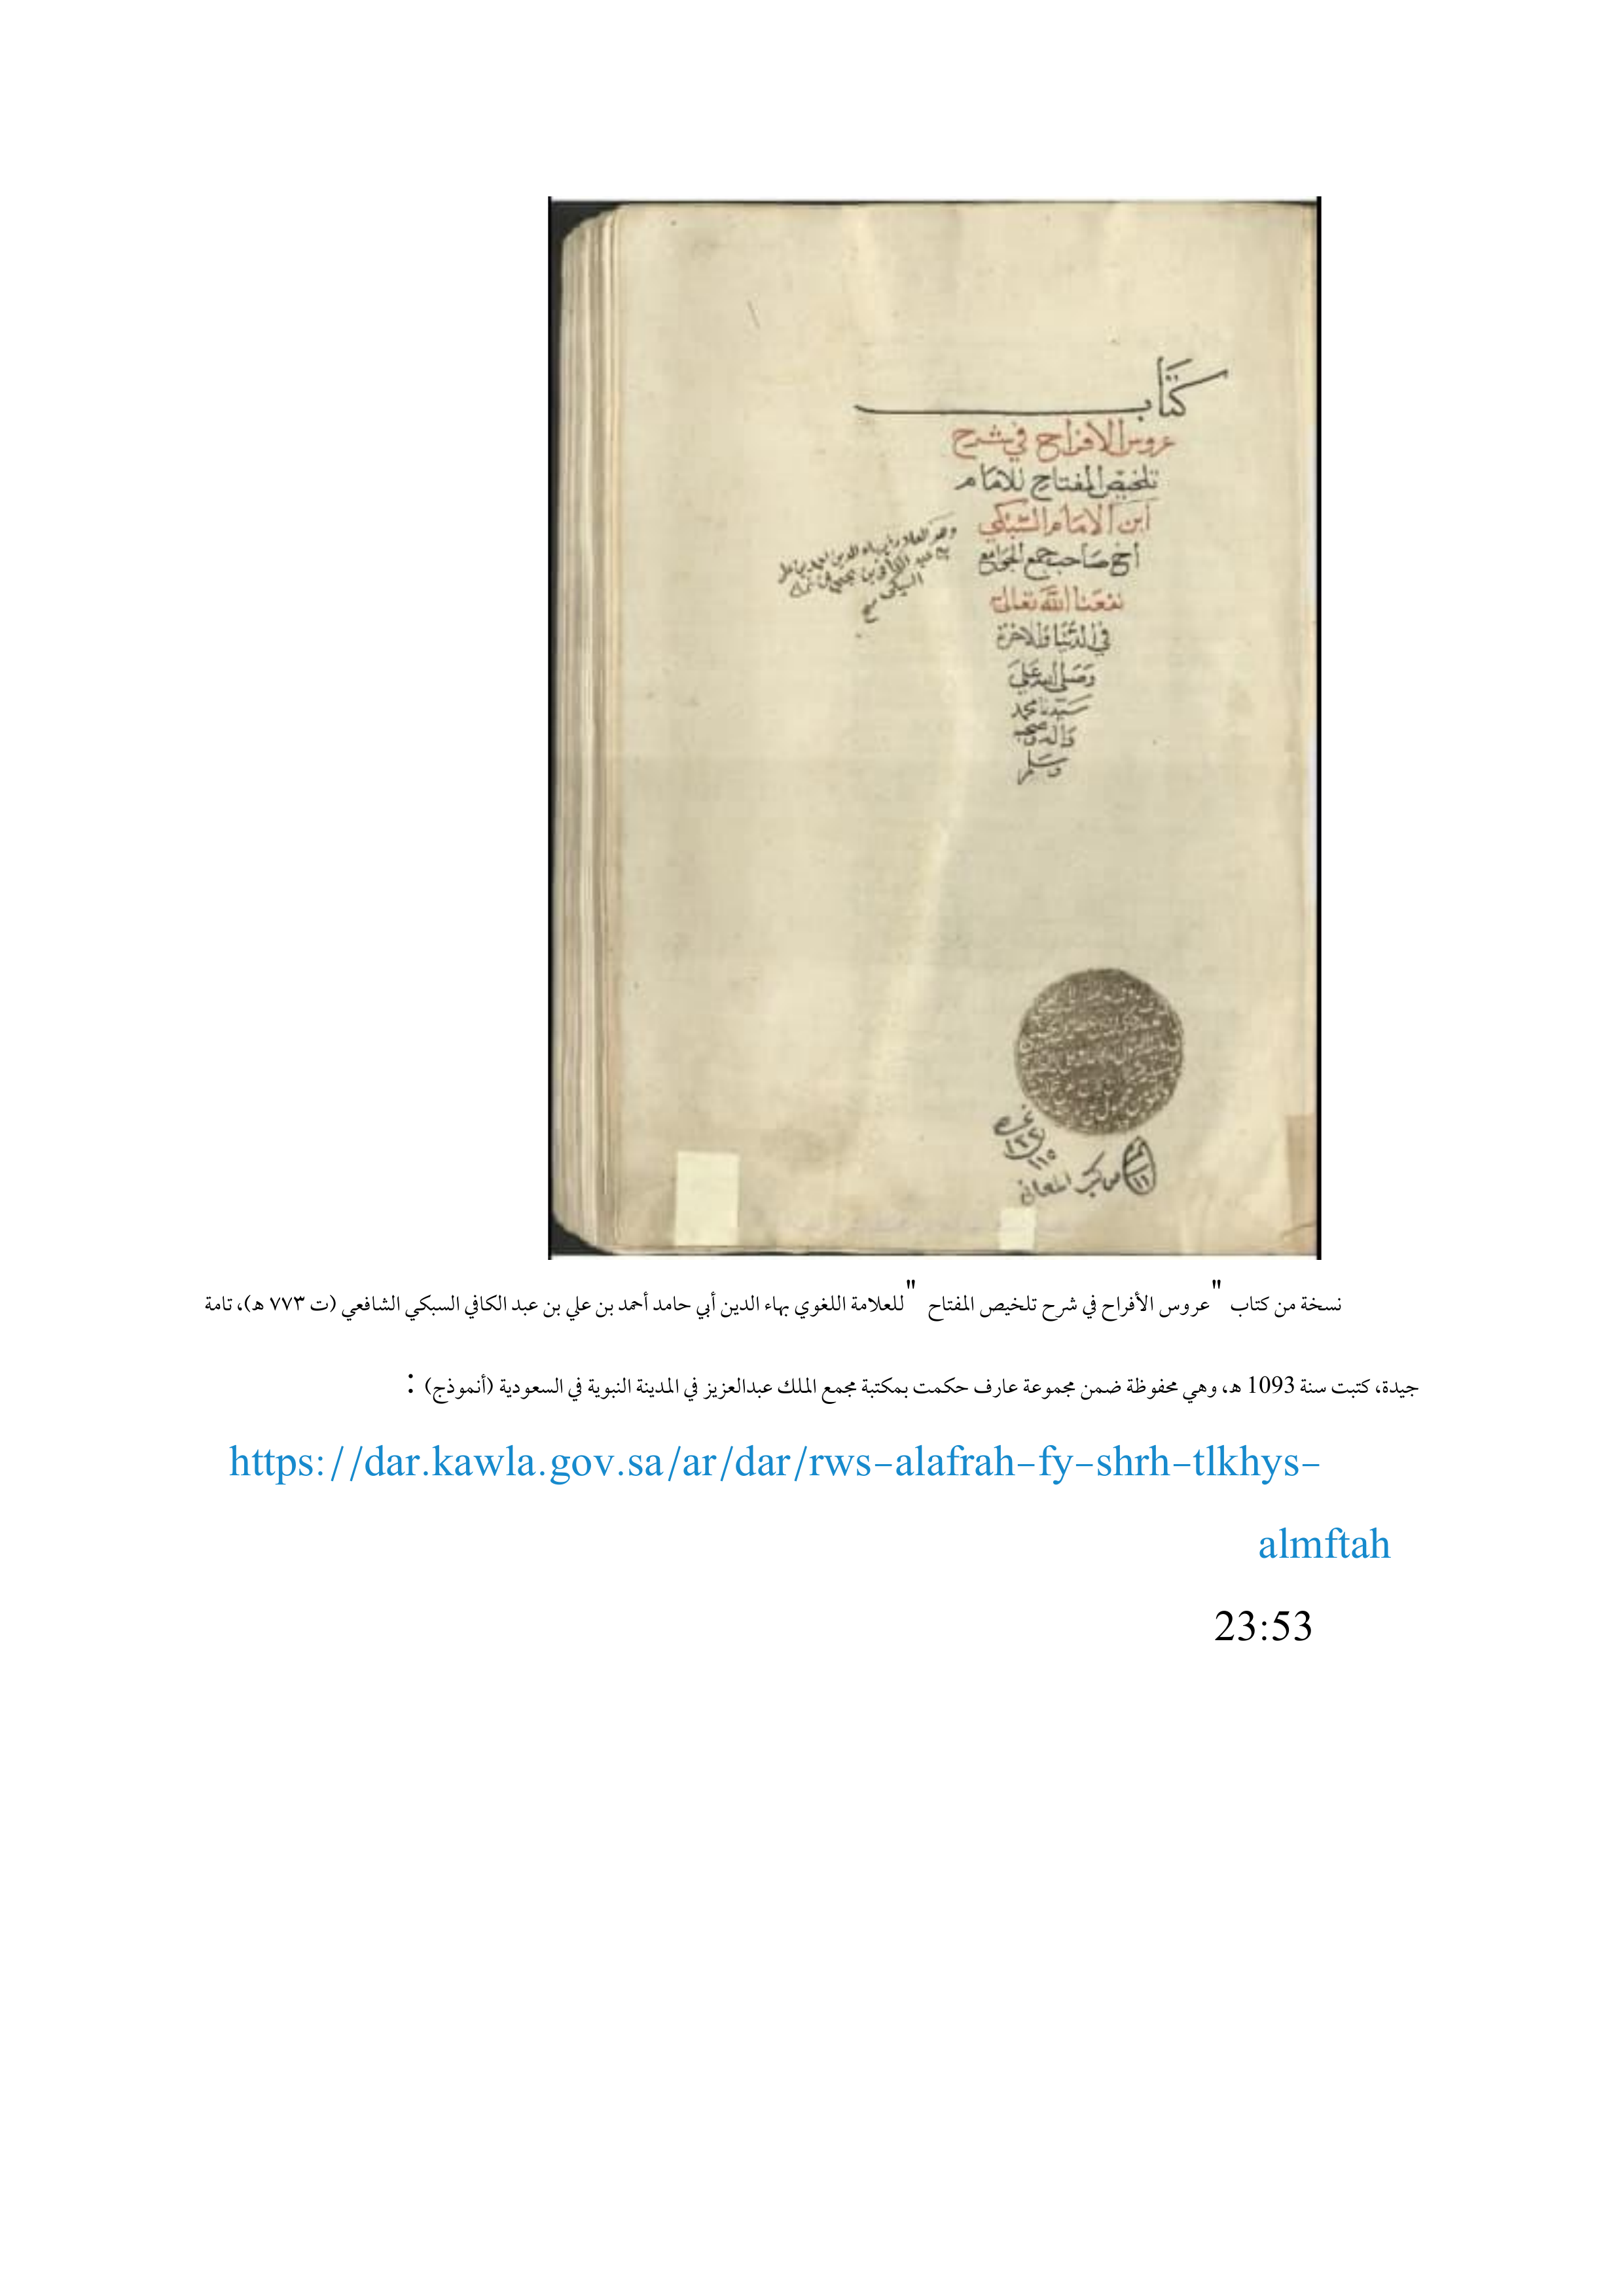 كتاب
عروس الافراح في شرح
تلخيص المفتاح للامام
ابن الامام السبكي
أخ صاحب جمع الجوامع
نفعنا الله تعالى
في الدنيا والاخرة
وصلى الله على
سيدنا محمد
واله وصحبه
وسلم
السبكي
من كتب المعاني
نسخة من كتاب "عروس الأفراح في شرح تلخيص المفتاح" للعلامة اللغوي بهاء الدين أبي حامد أحمد بن علي بن عبد الكافي السبكي الشافعي (ت ٧٧٣ ه)، تامة
جيدة، كتبت سنة 1093 ه، وهي محفوظة ضمن مجموعة عارف حكمت بمكتبة مجمع الملك عبدالعزيز في المدينة النبوية في السعودية (أنموذج) :
https://dar.kawla.gov.sa/ar/dar/rws-alafrah-fy-shrh-tlkhys-
almftah
23:53